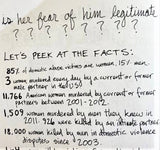 is her fear of him legitimate
? ? ? ? ? ? ? ? ?
LET'S PEEK AT THE FACTS:
85% of domestic abuse victims are women, 15% men
3 women murdered every day by a current or former male partner in the (US)
11,766 American women murdered by current or former partners between 2001-2012
1,509 women murdered by men they knew in 2011. 926 were killed by an intimate partner
18,000 women killed by men in domestic violence disputes since 2003.